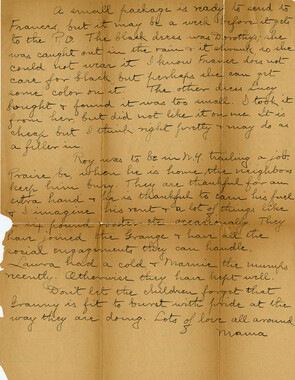 A small package is ready to send to
Frances, but it may be a week before it gets
to the P.O. The black dress was Dorothy's; she
was caught out in the rain & it shrunk so she
could not wear it. I know Frances does not
care for black but perhaps she can get
some color on it. The other dress Lucy
bought & found it was too small. I took it
from her, but did not like it on me. It is
cheap but I think right pretty & may do as
a filler in.
Roy was to be in N.Y. trailing a job.
Praise be, when he is home, the neighbors
keep him busy. They are thankful for an
extra hand & he is thankful to earn his fuel
& I imagine his rent & a lot of things like
pound rooster etc occasionally. They
have joined the Grange & have all the
social engagements they can handle.
Laura had a cold & Mamie the mumps
recently. Otherwise they have kept well.
Don't let the children forget that
Granny is fit to burst with pride at the
way they are doing. Lots of love all around
Mama